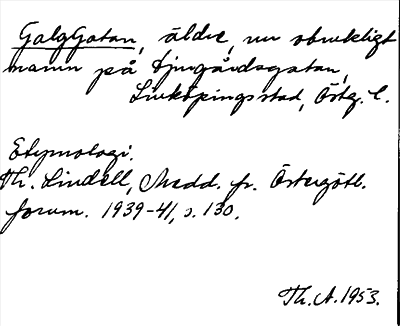 GalgGatan, äldre, nu obrukligt
namn på Djurgårdsgatan,
Linköpings stad, Östg. l.
Etymologi.
Th. Lindell, Medd. fr. Östergötl.
fornm. 1939-41, s. 130.
Th. A. 1953.